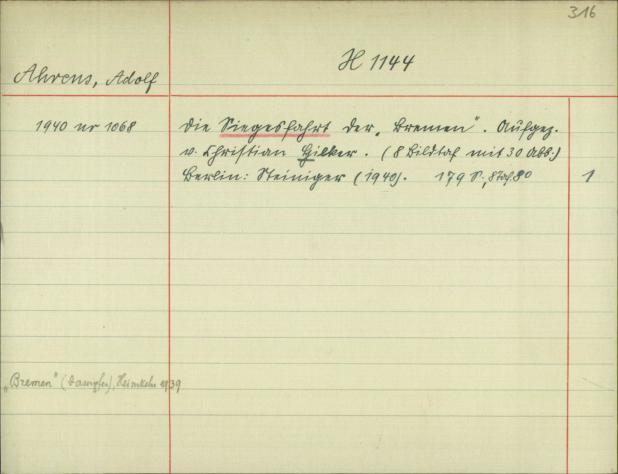 316
Ahrens, Adolf
H 1144
1940 nr 1068
Die Siegesfahrt der „Bremen“. Aufgez.
v. Christian Hilker. (8 Bildtaf mit 30 Abb.)
Berlin: Steiniger (1940). 179 S., 8 Taf. 8°
1
„Bremen“ (Dampfer), Heimkehr 1939